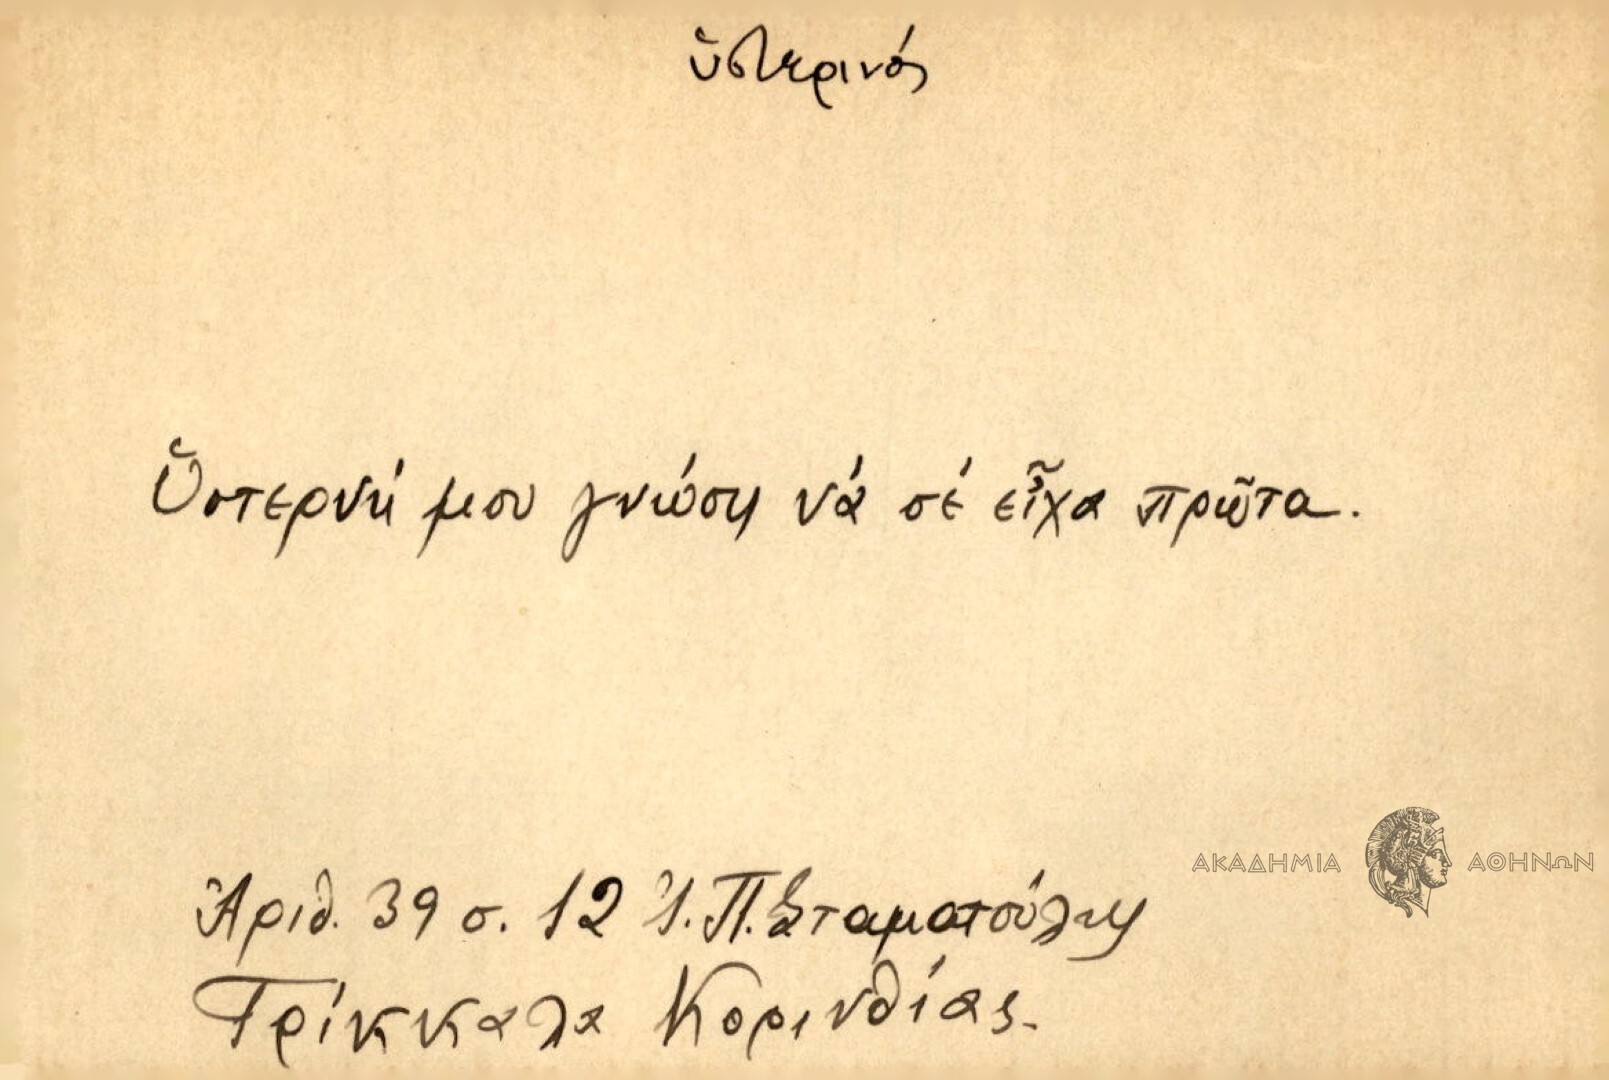 ὑστερινός
Ὑστερνή μου γνώση νά σέ εἶχα πρῶτα.
ΑΚΑΔΗΜΙΑ ΑΘΗΝΩΝ
Ἀριθ. 39 σ. 12 Ἰ. Π. Σταματούλη
Τρίκκαλα Κορινθίας.